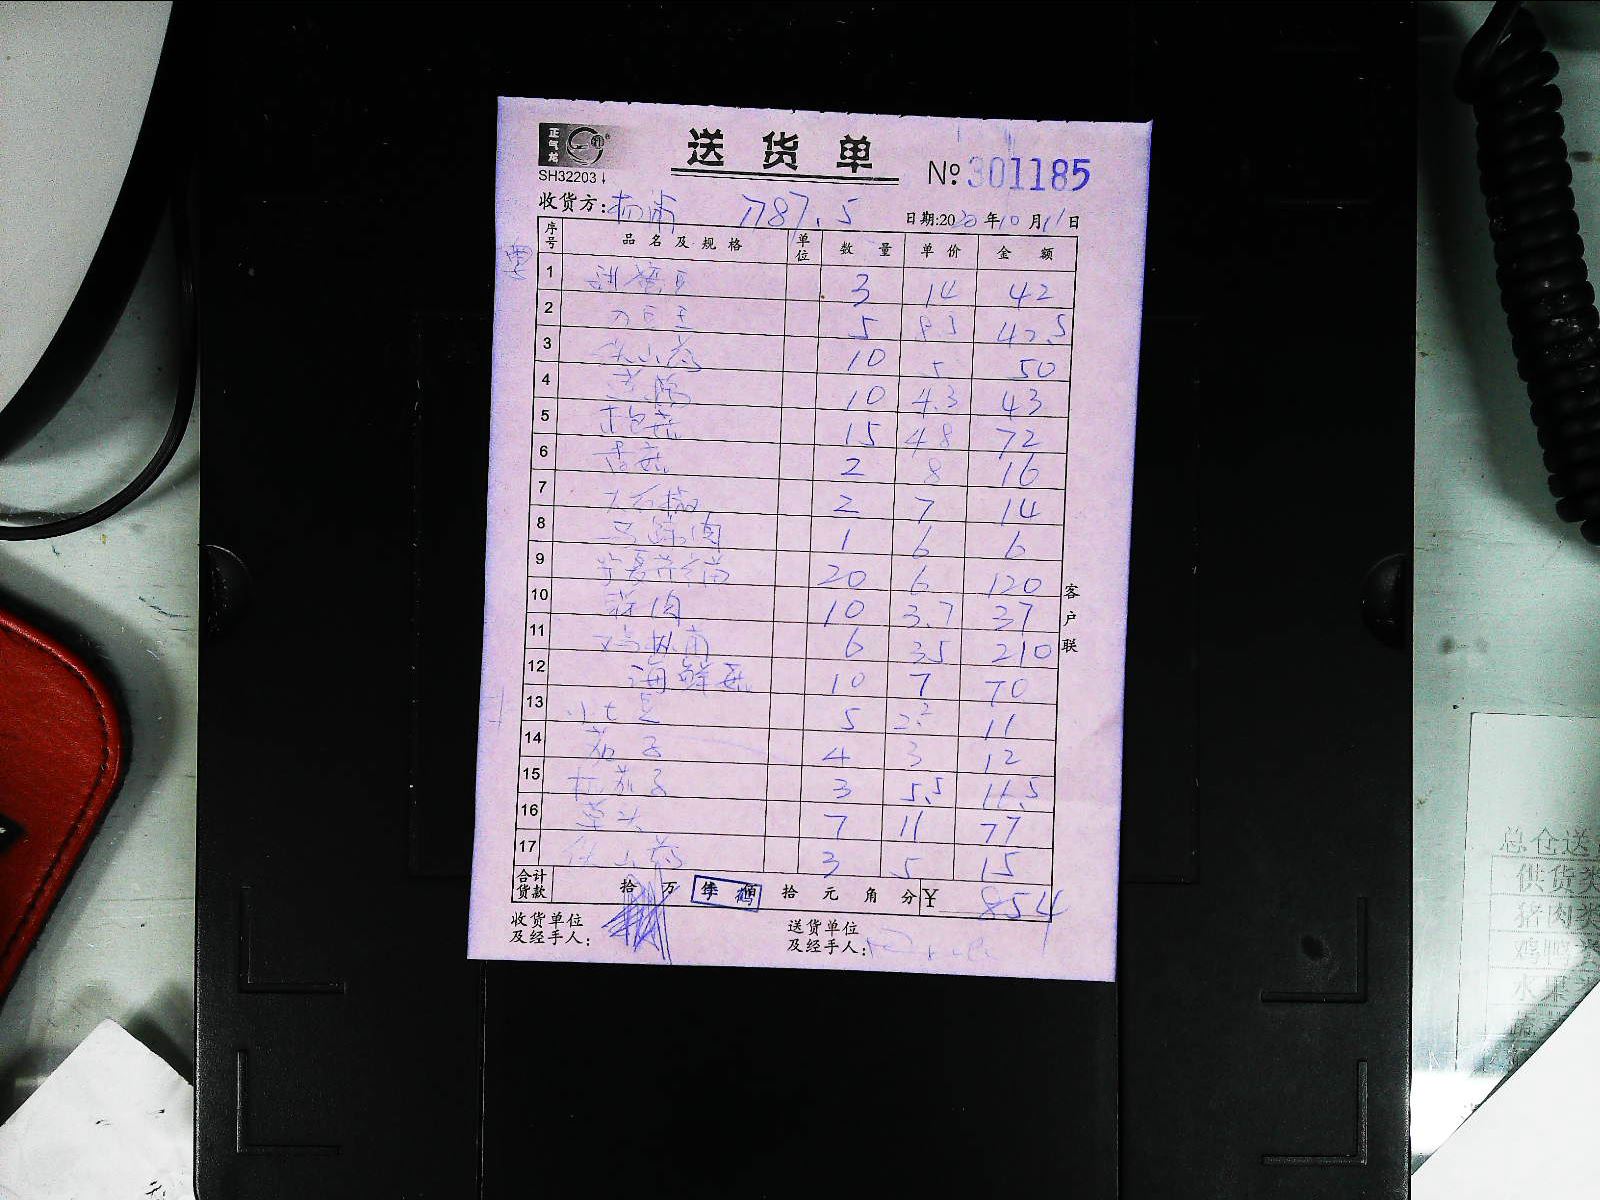 正气龙
送货单
SH32203
№ 301185
收货方: 杨浦 7787.5
日期:2020年10月11日
序号 品名及规格 单位 数量 单价 金额
1 3 14 42
2 刀豆王 5 8.5 42.5
3 铁山药 10 5 50
4 10 4.3 43
5 杏鲍菇 15 4.8 72
6 香菇 2 8 16
7 大石椒 2 7 14
8 马蹄肉 1 6 6
9 宁夏菜苗 20 6 120
10 10 3.7 37
11 6 35 210
12 海鲜菇 10 7 70
13 小土豆 5 2.2 11
14 茄子 4 3 12
15 杭茄子 3 5.5 16.5
16 草头 7 11 77
17 铁山药 3 5 15
合计货款 拾 万 仟 佰 拾 元 角 分 ¥ 854
收货单位及经手人:
送货单位及经手人:
客户联
总仓送
供货类
猪肉类
鸡鸭类
水果类